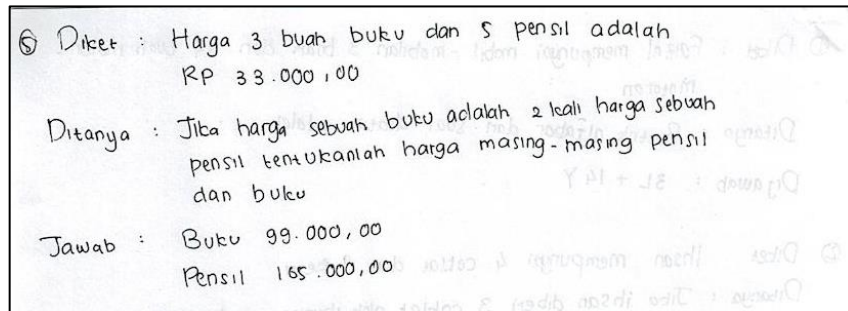 ⑤ Diket : Harga 3 buah buku dan 5 pensil adalah
RP 33.000,00
Ditanya : Jika harga sebuah buku adalah 2 kali harga sebuah
pensil tentukanlah harga masing-masing pensil
dan buku
Jawab : Buku 99.000,00
Pensil 165.000,00